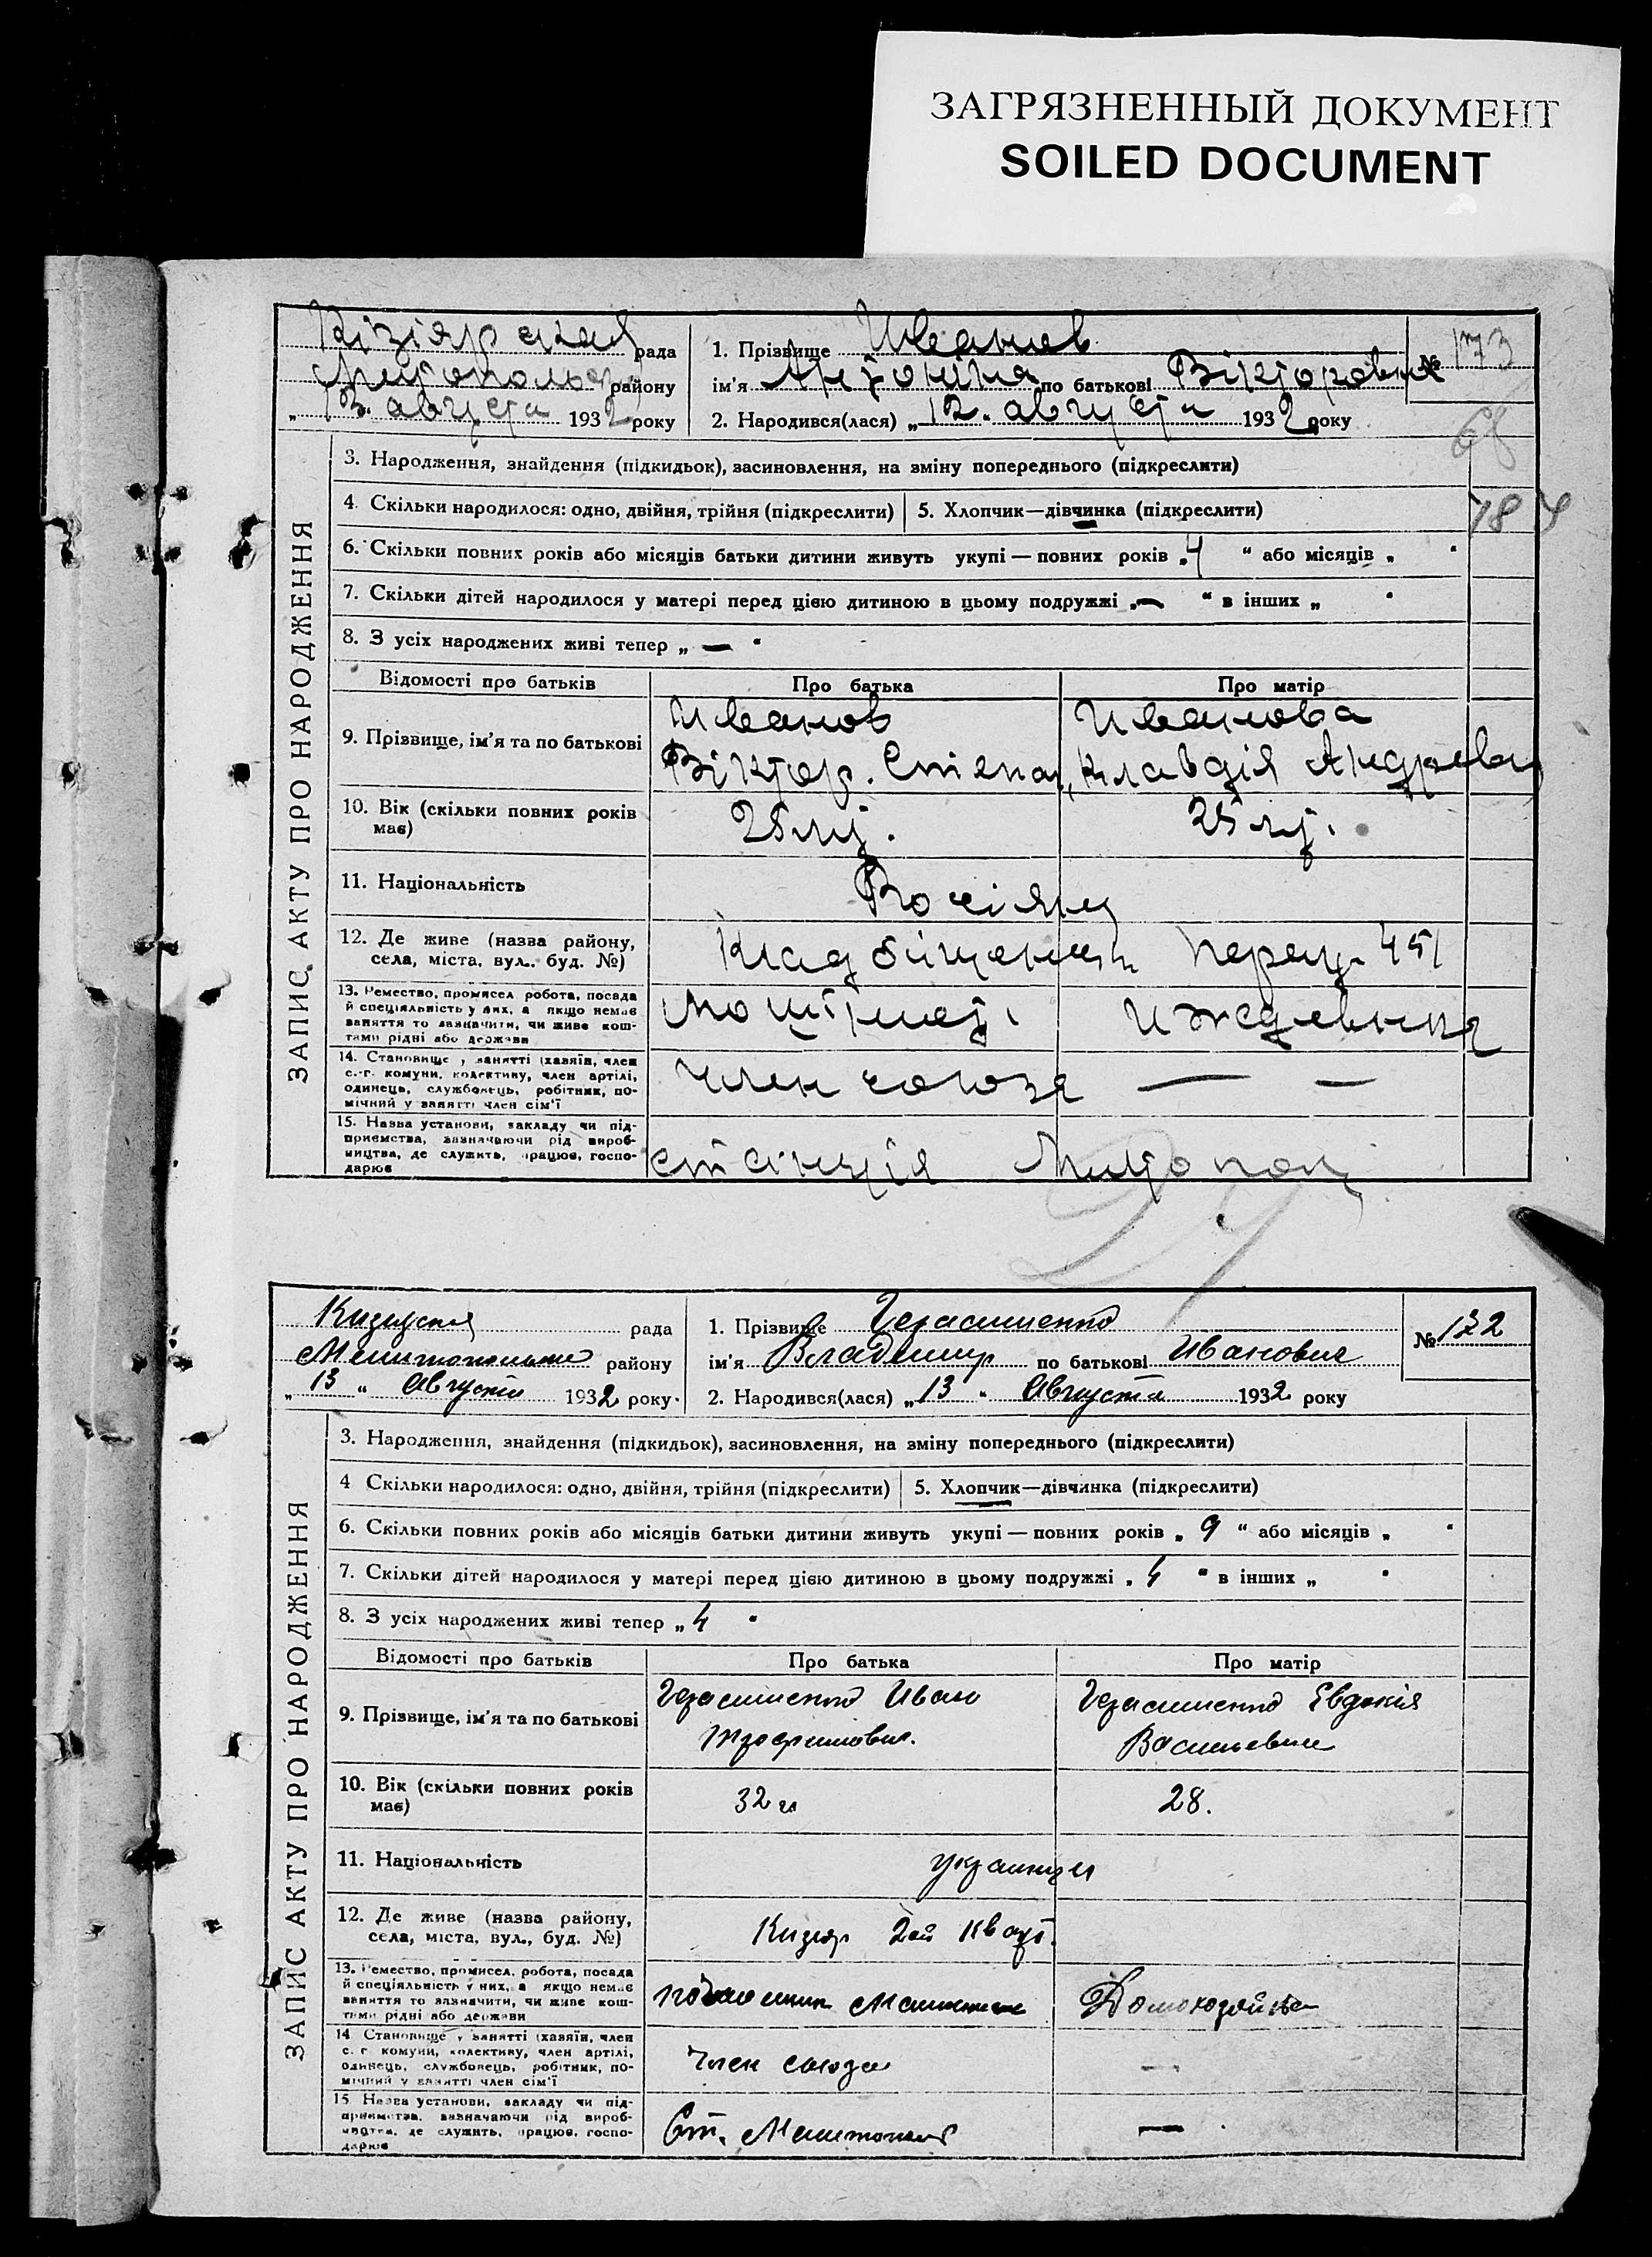 ЗАГРЯЗНЕННЫЙ ДОКУМЕНТ
SOILED DOCUMENT
Кізіярская рада
району
13. августа 1932 року
1. Прізвище Иванов
ім'я Антоніна по батькові Вікторовна
2. Народився(лася) „12." августа 1932 року
№ 173
68
78
ЗАПИС АКТУ ПРО НАРОДЖЕННЯ
3. Народження, знайдення (підкидьок), засиновлення, на зміну попереднього (підкреслити)
4. Скільки народилося: одно, двійня, трійня (підкреслити) 5. Хлопчик—дівчинка (підкреслити)
6. Скільки повних років або місяців батьки дитини живуть укупі — повних років „4" або місяців „ "
7. Скільки дітей народилося у матері перед цією дитиною в цьому подружжі „—" в інших „ "
8. З усіх народжених живі тепер „ — "
Відомості про батьків Про батька Про матір
9. Прізвище, ім'я та по батькові
Иванов Иванова
Віктор. Степан. Клавдія Андреевн
10. Вік (скільки повних років має) 25 25
11. Національність Росіяни
12. Де живе (назва району, села, міста, вул., буд. №) 451
13. Ремество, промисел робота, посада й спеціяльність у них, а якщо немає заняття то зазначити, чи живе коштами рідні або держави
14. Становище у занятті (хазяїн, член с.-г. комуни, колективу, член артілі, одинець, службовець, робітник, помічний у занятті член сім'ї член союза — —
15. Назва установи, закладу чи підприємства, зазначаючи рід виробництва, де служить, працює, господарює
станція
27
рада
Мелитопольськ району
„13" Августа 1932 року
1. Прізвище Герасименко
ім'я Владимир по батькові Иванович
2. Народився(лася) „13" Августа 1932 року
№ 172
ЗАПИС АКТУ ПРО НАРОДЖЕННЯ
3. Народження, знайдення (підкидьок), засиновлення, на зміну попереднього (підкреслити)
4 Скільки народилося: одно, двійня, трійня (підкреслити) 5. Хлопчик—дівчинка (підкреслити)
6. Скільки повних років або місяців батьки дитини живуть укупі — повних років „ 9 " або місяців „ "
7. Скільки дітей народилося у матері перед цією дитиною в цьому подружжі „ 4 " в інших „ "
8. З усіх народжених живі тепер „ 4 "
Відомості про батьків Про батька Про матір
9. Прізвище, ім'я та по батькові
Герасименко Иван Герасименко Евдокія
Васильевна
10. Вік (скільки повних років має) 32 28.
11. Національність украинцы
12. Де живе (назва району, села, міста, вул., буд. №) Кизияр 2ой Кварт.
13. Ремество, промисел, робота, посада й спеціяльність у них, а якщо немає заняття то зазначити, чи живе коштами рідні або держави
Домохозяйка
14 Становище у занятті (хазяїн, член с. г комуни, колективу, член артілі, одинець, службовець, робітник, помічний у занятті член сім'ї Член союза —
15 Назва установи, закладу чи підприємства, зазначаючи рід виробництва, де служить, працює, господарює
Ст. Мелитополь —